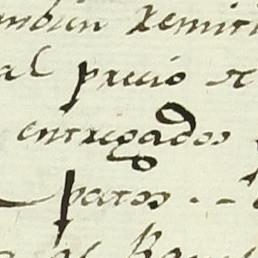 mbien remiti
al precio de
entregados
patos - -